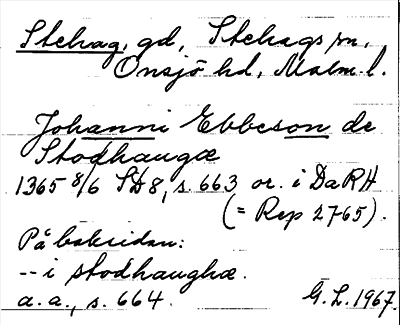 Stehag, gd, Stehags sn,
Onsjö hd, Malm. l.
Johanni Ebbeson de
Stodhaugæ
1365 8/6 SD8, s. 663 or. i DaRH
(= Rep 2765).
På baksidan:
-- i stodhaughæ.
a. a., s. 664. G. L. 1967.